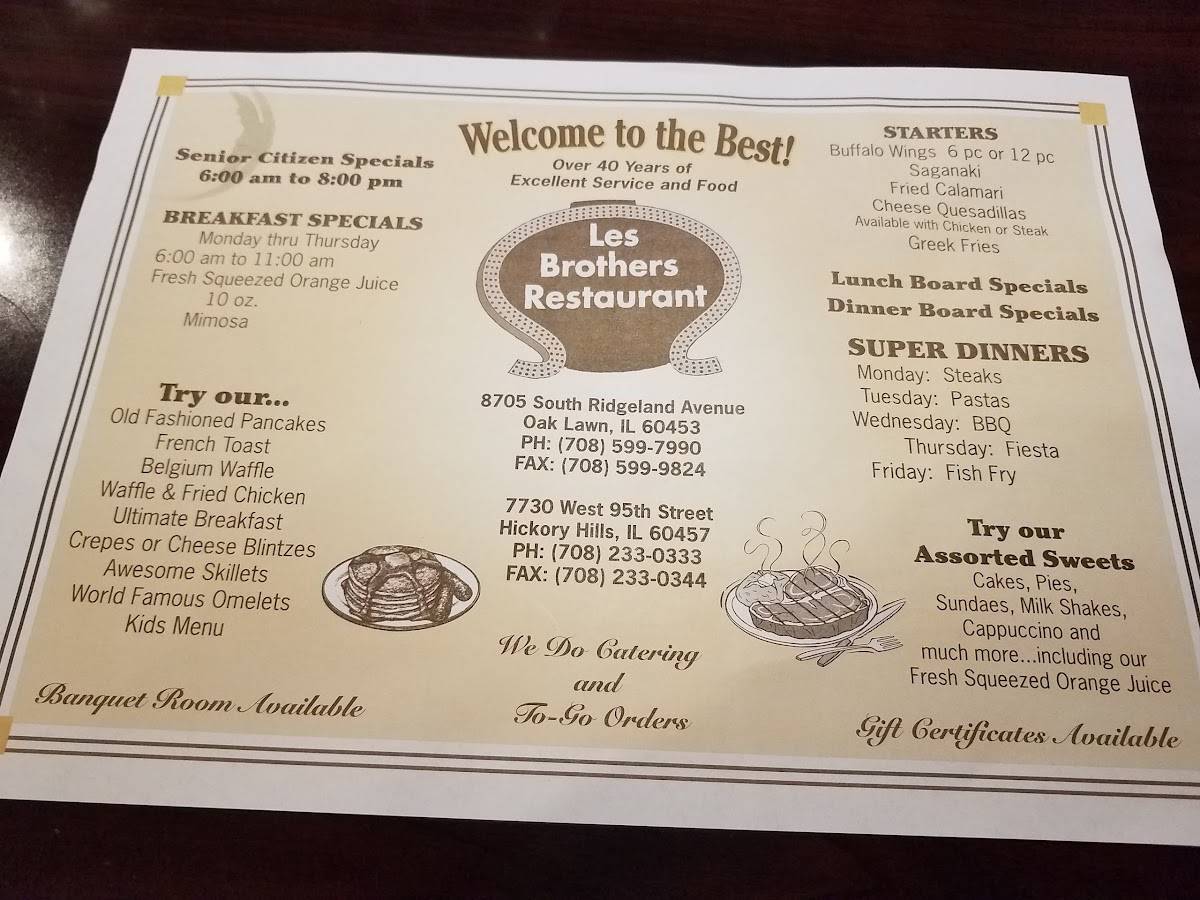 Senior Citizen Specials
6:00 am to 8:00 pm
BREAKFAST SPECIALS
Monday thru Thursday
6:00 am to 11:00 am
Fresh Squeezed Orange Juice
10 oz.
Mimosa
Try our...
Old Fashioned Pancakes
French Toast
Belgium Waffle
Waffle & Fried Chicken
Ultimate Breakfast
Crepes or Cheese Blintzes
Awesome Skillets
World Famous Omelets
Kids Menu
Banquet Room Available
Welcome to the Best!
Over 40 Years of
Excellent Service and Food
Les
Brothers
Restaurant
8705 South Ridgeland Avenue
Oak Lawn, IL 60453
PH: (708) 599-7990
FAX: (708) 599-9824
7730 West 95th Street
Hickory Hills, IL 60457
PH: (708) 233-0333
FAX: (708) 233-0344
We Do Catering
and
To-Go Orders
STARTERS
Buffalo Wings 6 pc or 12 pc
Saganaki
Fried Calamari
Cheese Quesadillas
Available with Chicken or Steak
Greek Fries
Lunch Board Specials
Dinner Board Specials
SUPER DINNERS
Monday: Steaks
Tuesday: Pastas
Wednesday: BBQ
Thursday: Fiesta
Friday: Fish Fry
Try our
Assorted Sweets
Cakes, Pies,
Sundaes, Milk Shakes,
Cappuccino and
much more...including our
Fresh Squeezed Orange Juice
Gift Certificates Available